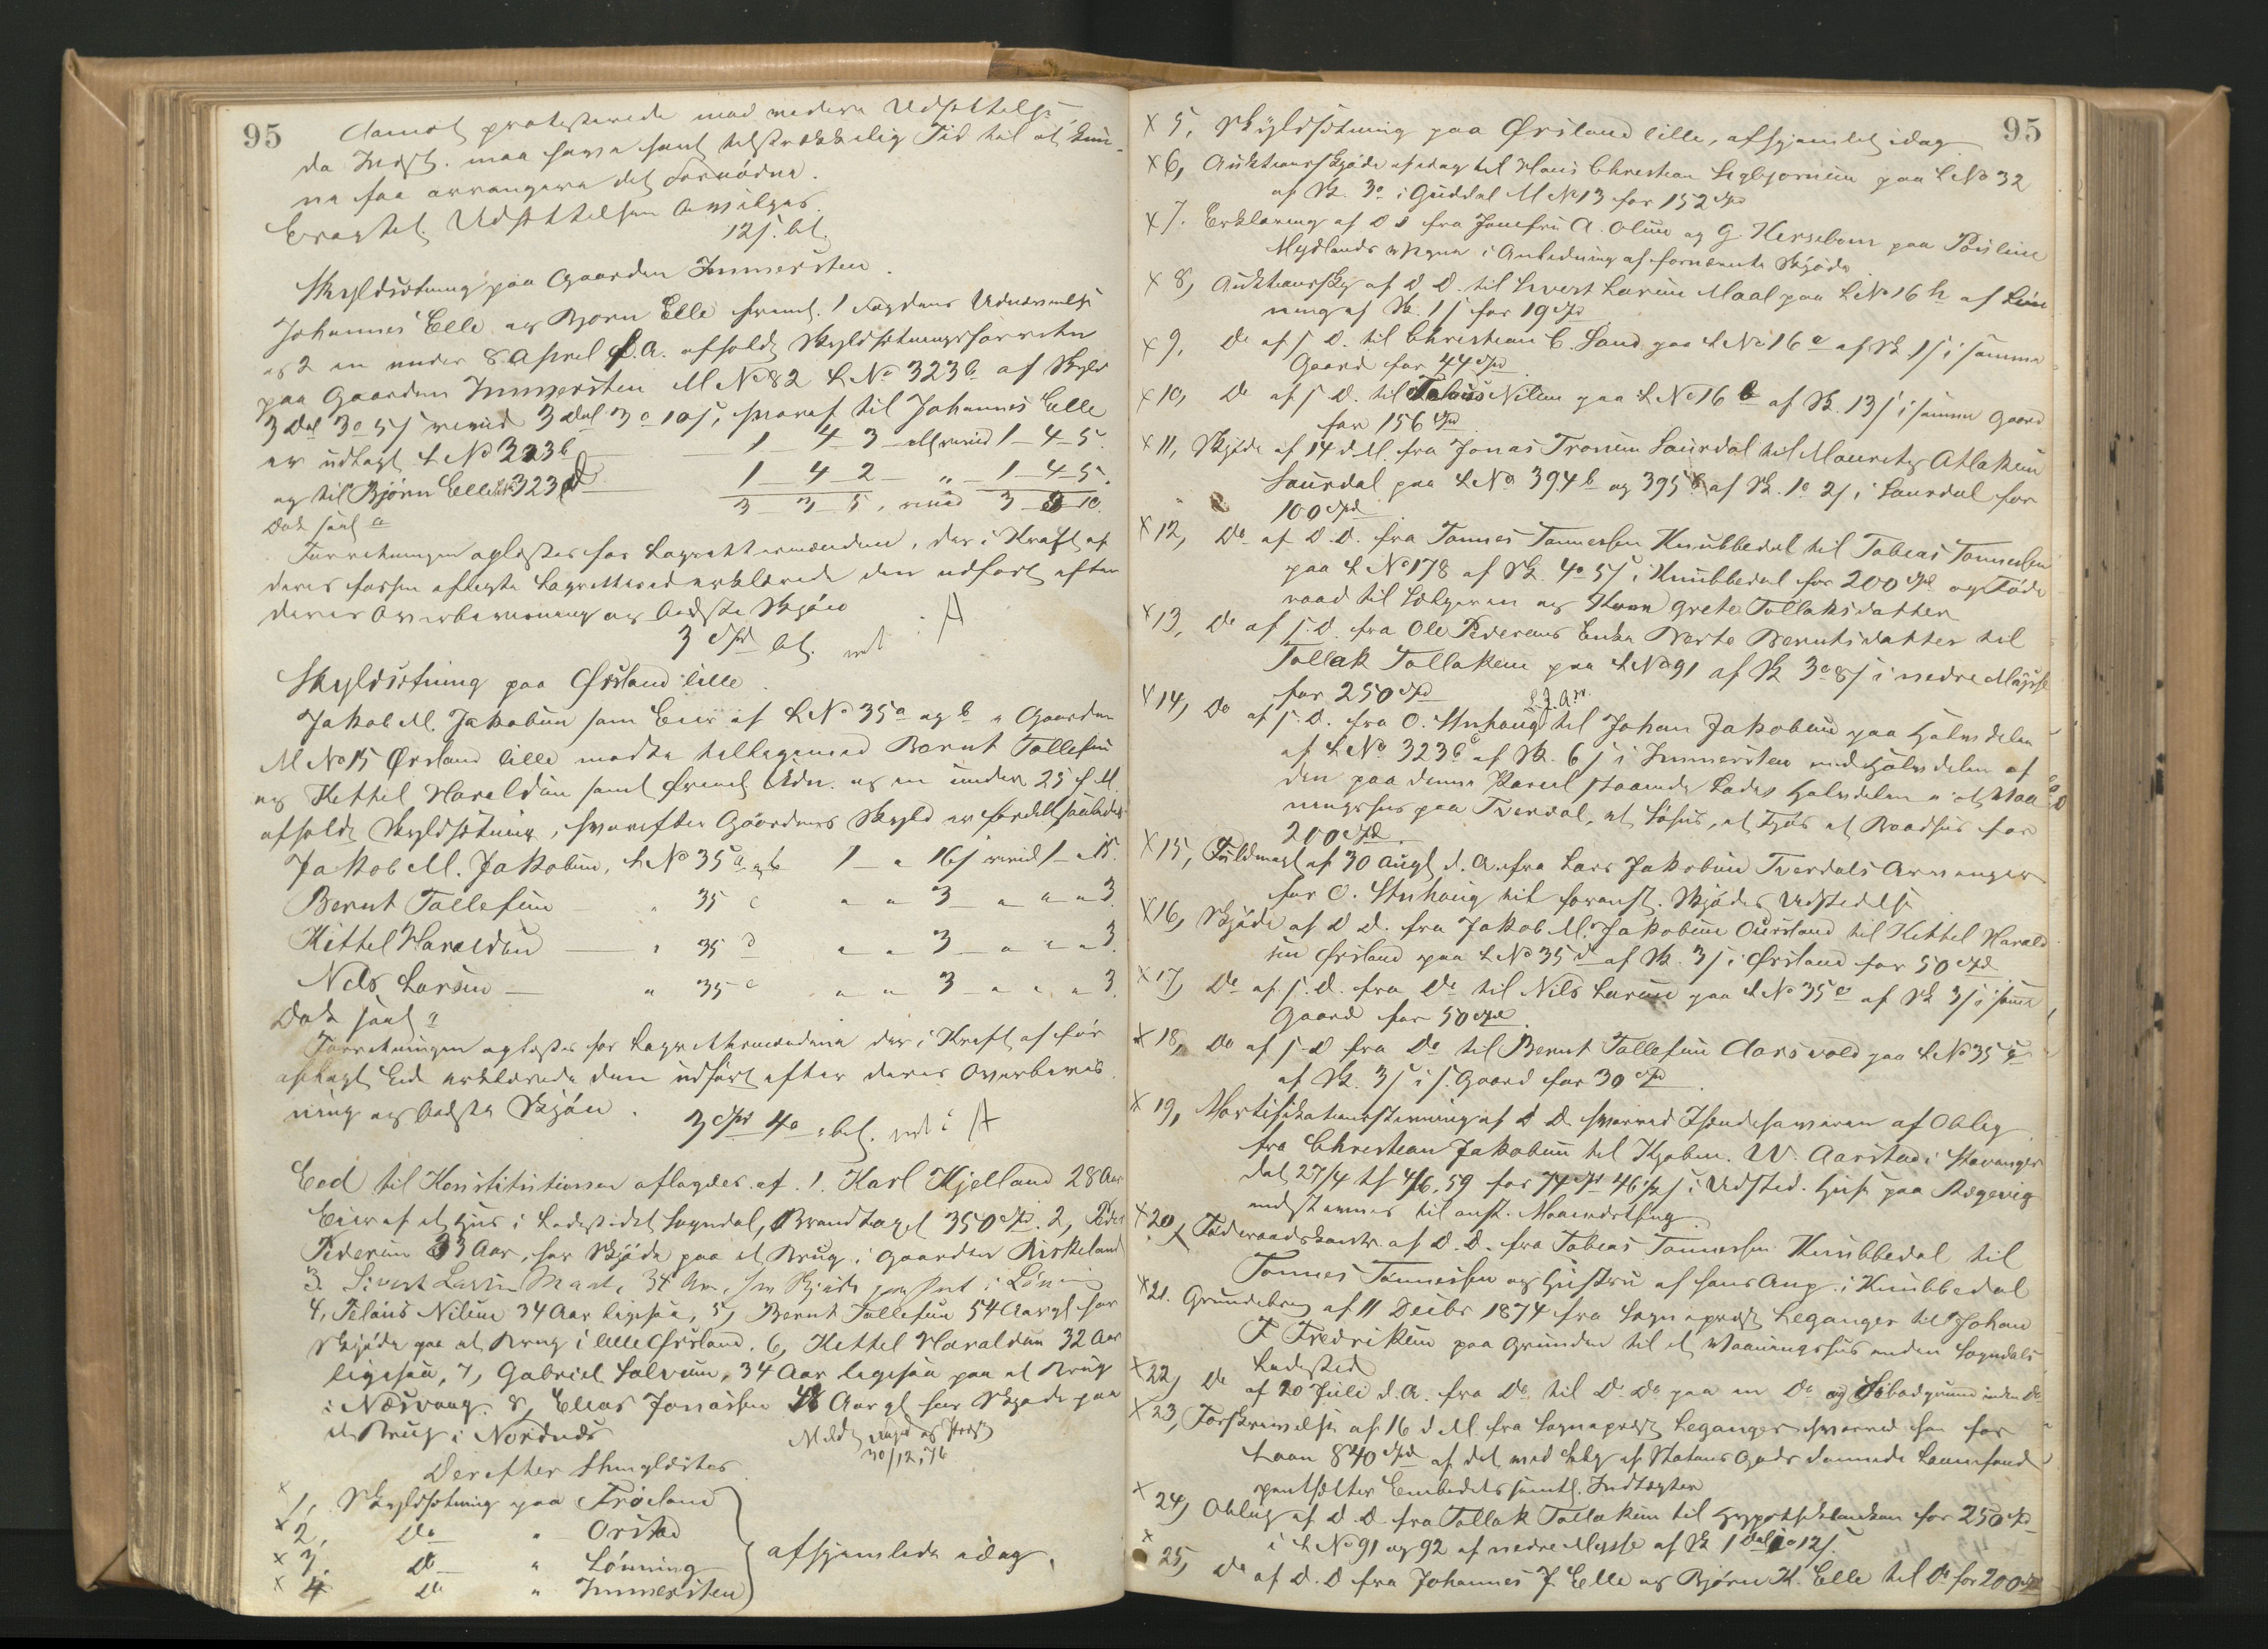 95
protesterede mod videre Udsættelse
da Indst. maa have havt tilstrækkelig Tid til at kun-
ne faa arrangere det Fornødne.
Eragtet. Udsættelsen bevilges.
12 s. bet.
Skyldsætning paa Gaarden Immersten.
Johannes Elle og Bjørn Elle freml. 1 Fogdens Udnævnelse
og 2 en under 8 April d. A. afholdt Skyldsætningsforretn
paa Gaarden Immersten M No 82 L No 323b af Skyld
3 Dal 3 o 5 s revid 3 Dal 3 o 10 s, hvoraf til Johannes Elle
er udlagt L No 323b 1 - 4 - 3 - all revid 1 - 4 - 5.
og til Bjørn Elle 323d 1 4 2 " 1 - 4 - 5.
3 3 5, revid 3 3 10.
Forretningen oplæstes for Lagrettemændene, der i Kraft af
deres forhen aflagte Lagretteed erklærede den udført efter
deres Overbevisning og bedste Skjøn
3 Spd bet.
Skyldsætning paa Ørsland lille.
Jakob M. Jakobsen som Eier af L No 35a og b i Gaarden
M No 15 Ørsland lille mødte tilligemed Bernt Tollefsen
og Kittel Haraldsen samt freml. Udn. og en under 25 f. M.
afholdt Skyldsætning, hvorefter Gaardens Skyld er fordelt saaledes
Jakob M. Jakobsen, L No 35 a og b 1 - " 16 s revid 1 - " 15.
Bernt Tollefsen " 35 c " " 3 - " " " 3.
Kittel Haraldsen " 35 d " " 3 - " " " 3.
Nils Larsen " 35 e " " 3 - " " " 3.
Forretningen oplæstes for Lagrettemændene der i Kraft af før
aflagt Eed erklærede den udført efter deres Overbevis-
ning og bedste Skjøn.
3 Spd 4 o bet.
Eed til Konstitutionen aflagdes af. 1. Karl Kjelland 28 Aar
Eier af et Hus i Ladestedet Sogndal, Brandtaxt 350 Spd. 2, Peder
Pedersen 33 Aar, har Skjøde paa et Brug i Gaarden Birkeland
3. Sivert Larsen Maal, 34 Aar, har Skjøde paa
4, Nilsen 34 Aar ligesaa, 5, Bernt Tollefsen 54 Aar gl har
Skjøde paa et Brug i lille Ørsland. 6, Kittel Haraldsen 32 Aar
ligesaa, 7, Gabriel Salvesen, 34 Aar ligesaa paa et Brug
i Næsvaag. 8, Elias Jonassen Aar gl har Skjøde paa
et Brug i
30/12, 76
Derefter thinglæstes
x 1, Skyldsætning paa Frøiland
x 2, Do " Orstad
x 3, Do " Lønning
x 4 Do " Immersten
afhjemlede idag.
95
x 5, Skyldsætning paa Ørsland lille, afhjemlet idag
x 6, Auktionsskjøde af idag til Hans Christian paa L No 32
af Sk. 3 o i Guddal M No 13 for 152 Spd
x 7. Erklæring af D D fra Jomfru A. Olsen og G. Kersebom paa
Vegne i Anledning af fornævnte Skjøde
x 8, Auktionsskj af D D. til Sivert Larsen Maal paa L No 16 h af Løn-
ning af Sk. 1 s for 19 Spd
x 9, Do af s D. til Christian C. Sand paa L No 16 e af Sk 1 s i samme
Gaard for 44 Spd
x 10, Do af s D. til Nilsen paa L No 16 b af Sk. 13 s i samme Gaard
for 156 Spd
x 11, Skjøde af 14 d. M. fra Jonas Tronsen Saurdal til Mauritz Atlaksen
Saurdal paa L No 394 b og 395 b af Sk. 1 o 2 s i Saurdal for
100 Spd
x 12, Do af D. D. fra Tønnes Tønnessen Knubbedal til Tobias Tønnessen
paa L No 178 af Sk. 4 o 5 s i Knubbedal for 200 Spd og Føde-
raad til Sælgeren og Kone Grete Tollaksdatter
x 13, Do af s. D. fra Ole Pedersens Enke Berte Berntsdatter til
Tollak Tollaksen paa L No 91 af Sk 3 o 8 s i nedre Mysse
for 250 Spd
x 14, Do af s. D. fra O. Stuhaug til Johan Jakobsen paa Halvdelen
af L No 323 c af Sk. 6 s i Immersten med Halvdelen af
den paa denne Parcel staaende Lade, Halvdelen i et Vaa-
ningshus paa Tverdal, et Søhus, et Fjøs et Baadhus for
200 Spd.
x 15, Fuldmagt af 30 Augt d. A. fra Lars Jakobsen Tverdals Arvinger
for O. Stuhaug til foranst. Skjødes Udstedelse
x 16, Skjøde af D D. fra Jakob M. Jakobsen Ørsland til Kittel Harald-
sen Ørsland paa L No 35 d af Sk. 3 s i Ørsland for 50 Spd
x 17, Do af s. D. fra Do til Nils Larsen paa L No 35 e af Sk 3 s i samme
Gaard for 50 Spd.
x 18, Do af s D fra Do til Bernt Tollefsen Aarsvold paa L No 35 c
af Sk. 3 s i s. Gaard for 30 Spd
x 19, Mortifikationsstevning af D D hvorved Ihændehaveren af Oblig.
fra Christian Jakobsen til Kjøbm. W. Aarstad i Stavanger
dat 27/4 tl 4/6. 59 for 74 Spd 46 1/2 s i Udsted. Huse paa Rægevig
indstevnes til anst. Maanedsthing.
x 20, Føderaadskontr. af D. D. fra Tobias Tønnessen Knubbedal til
Tønnes Tønnessen og Hustru af hans Anp. i Knubbedal
x 21. Grundebrev af 11 Decbr 1874 fra Sognepræst Leganger til Johan
F. Fredriksen paa Grunden til et Vaaningshus inden Sogndals
Ladested
x 22, Do af 20 Juli d. A. fra Do. til Do Do paa en Do og Søbodgrund inden Do
x 23, Forskrivelse af 16 d M. fra Sognepræst Leganger hvorved han for
Laan 840 Spd af det ved Salg af Statens Gods dannede Laanefond
pantsætter Embedets samtl. Indtægter
x 24, Oblig af d. D. fra Tollak Tollaksen til Hypothekbanken for 250 Spd
i L No 91 og 92 af nedre Mysse af Sk 1 Dal 1 o 12 s.
x 25, Do af D. D fra Johannes J. Elle og Bjørn K. Elle til Do for 200 Spd